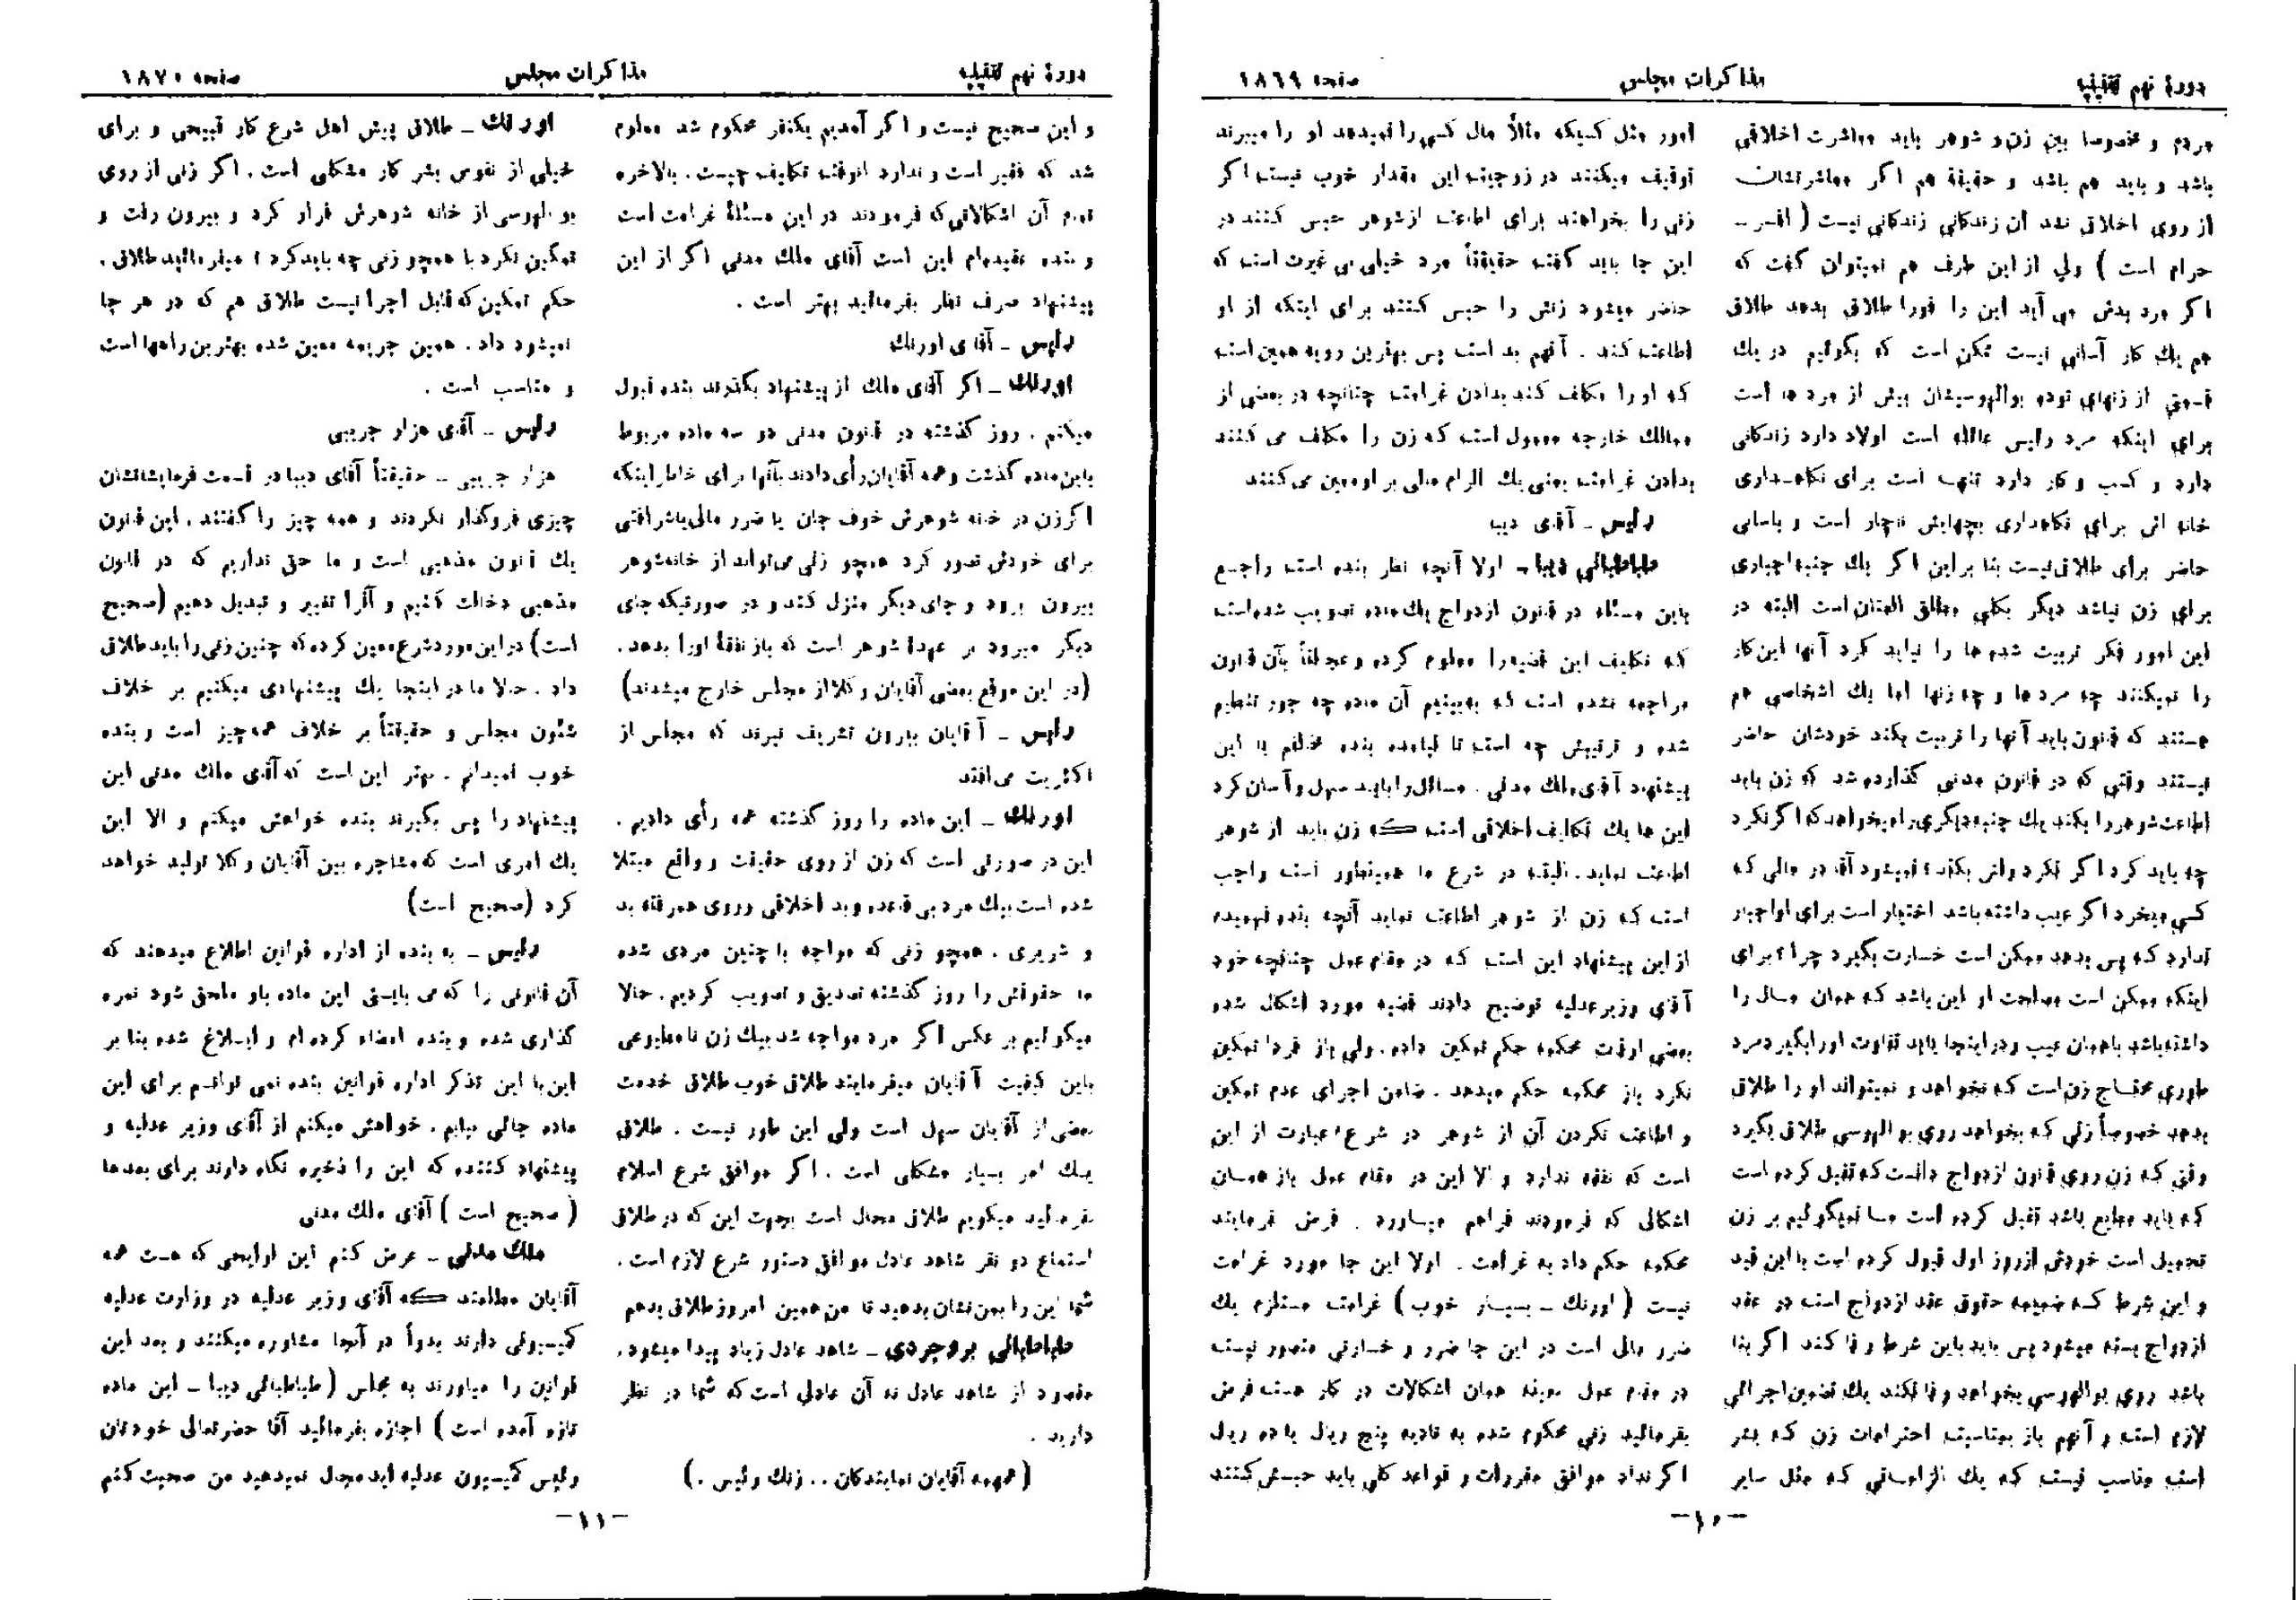 دورهٔ نهم تقنینیه
مذاکرات مجلس
صفحه ۱۸۶۹
مردم و مخصوصا بین زن و شوهر باید معاشرت اخلاقی
باشد و باید هم باشد و حقیقة هم اگر معاشرتشان
از روی اخلاق نشد آن زندگانی زندگانی نیست ( افسر –
حرام است ) ولی از این طرف هم نمیتوان گفت که
اگر مرد بدش می آید این را فورا طلاق بدهد طلاق
هم یك کار آسانی نیست ممکن است که بگوئیم در یك
قسمتی از زنهای توده بوالهوسیشان بیش از مرد ها است
برای اینکه مرد رئیس عائله است اولاد دارد زندگانی
دارد و کسب و کار دارد تنهـ است برای نگاهـداری
خانه اش برای نگاهداری بچهایش ناچار است و باسانی
حاضر برای طلاق نیست بنا براین اگر یك جنبه اجباری
برای زن نباشد دیگر بکلی مطلق العنان است البته در
این امور فکر تربیت شده ها را نباید کرد آنها این کار
را نمیکنند چه مرد ها و چه زنها اما یك اشخاصی هم
هستند که قانون باید آنها را تربیت بکند خودشان حاضر
نیستند وقتی که در قانون مدنی گذارده شد که زن باید
اطاعت شوهر را بکند یك جنبه دیگری را میخواهد که اگر نکرد
چه باید کرد اگر نکرد ولش بکند؟ نمیشود آقا در مالی که
کسی میخرد اگر عیب داشته باشد اختیار است برای او اجبار
ندارد که پس بدهد ممکن است خسارت بگیرد چرا؟ برای
اینکه ممکن است مصلحت او این باشد که همان مـال را
داشته باشد با همان عیب و در اینجا باید تفاوت او را بگیرد مرد
طوری محتاج زن است که نخواهد و نمیتواند او را طلاق
بدهد خصوصاً زنی که بخواهد روی بوالهوسی طلاق بگیرد
وقتی که زن روی قانون ازدواج دانست که تقبل کرده است
که باید مطیع باشد تقبل کرده است مـا نمیگوئیم بر زن
تحمیل است خودش از روز اول قبول کرده است با این قید
و این شرط کـه ضمیمه حقوق عقد ازدواج است در عقد
ازدواج بسته میشود پس باید باین شرط وفا کند اگر بنا
باشد روی بوالهوسی بخواهد وفا نکند یك تضمین اجرائی
لازم است و آنهم باز بمناسبت احترامات زن کـه بشر
است مناسب نیست کـه یك الزامـاتی کـه مثل سایر
امور مثل کسیکه مثلاً مال کسی را نمیدهد او را میبرند
توقیف میکنند در زوجیت این مقدار خوب نیست اگر
زنی را بخواهند برای اطاعت از شوهر حبس کنند در
این جا باید گفت حقیقتاً مرد خیلی بی غیرت است که
حاضر میشود زنش را حبس کنند برای اینکه از او
اطاعت کند . آنهم بد است پس بهترین رویه همین است
که او را مکلف کند بدادن غرامت چنانچه در بعضی از
ممالك خارجه معمول است که زن را مکلف می کنند
بدادن غرامت یعنی یك الزام مالی بر او معین می کنند
رئیس – آقای دیبا
طباطبائی دیبا – اولا آنچه نظر بنده است راجـع
باین مسئله در قانون ازدواج یك ماده تصویب شده است
که تکلیف این قضیه را معلوم کرده و عجالتاً بآن قانون
مراجعه نشده است که به بینیم آن ماده چه جور تنظیم
شده و ترتیبش چه است تا نیامده بنده مخالفم با این
پیشنهاد آقای ملك مدنی . مسائل را باید سهل و آسان کرد
این ها یك تکالیف اخلاقی است کـه زن باید از شوهر
اطاعت نماید . البته در شرع ما همینطور است واجب
است که زن از شوهر اطاعت نماید آنچه بنده فهمیده
از این پیشنهاد این است که در مقام عمل چنانچه خود
آقای وزیر عدلیه توضیح دادند قضیه مورد اشکال شده
بعضی اوقات محکمه حکم تمکین داده . ولی باز فردا تمکین
نکرد باز محکمه حکم میدهد . ضامن اجرای عدم تمکین
و اطاعت نکردن آن از شوهر در شرع عبارت از این
است که نفقه ندارد و الا این در مقام عمل باز همـان
اشکالی که فرمودند فراهم میـاورد . فرض فرمایند
محکمه حکم داد به غرامت . اولا این جا مورد غرامت
نیست ( اورنك – بسیـار خوب ) غرامت مستلزم یك
ضرر مالی است در این جا ضرر و خسارتی متصور نیست
در مقام عمل بعینه همان اشکالات در کار هست فرض
بفرمائید زنی محکوم شده به تادیه پنج ریال یا ده ریال
اگر نداد موافق مقررات و قواعد کلی باید حبسش کنند
–۱۰–
دورهٔ نهم تقنینیه
مذاکرات مجلس
صفحه ۱۸۷۰
و این صحیح نیست و اگر آمدیم یکنفر محکوم شد معلوم
شد که فقیر است و ندارد آنوقت تکلیف چیست . بالاخره
تمام آن اشکالاتی که فرمودند در این مسئلهٔ غرامت است
و بنده عقیده‌ام این است آقای ملك مدنی اگر از این
پیشنهاد صرف نظر بفرمائید بهتر است .
رئیس – آقای اورنك
اورنك – اگر آقای ملك از پیشنهاد بگذرند بنده قبول
میکنم . روز گذشته در قانون مدنی دو سه ماده مربوط
باین ماده گذشت و همه آقایان رأی دادند بآنها برای خاطر اینکه
اگر زن در خانه شوهرش خوف جان یا ضرر مالی یا شرافتی
برای خودش تصور کرد همچو زنی می‌تواند از خانه شوهر
بیرون برود و جای دیگر منزل کند و در صورتیکه جای
دیگر میرود بر عهدهٔ شوهر است که باز نفقهٔ او را بدهد .
(در این موقع بعضی آقایان وکلا از مجلس خارج میشدند)
رئیس – آقایان بیرون تشریف نبرند که مجلس از
اکثریت می افتد
اورنك – این ماده را روز گذشته همه رأی دادیم .
این در صورتی است که زن از روی حقیقت و واقع مبتلا
شده است بیك مرد بی قاعده و بد اخلاقی و روی همرفته بد
و شریری . همچو زنی که مواجه با چنین مردی شده
ما حقوقش را روز گذشته تصدیق و تصویب کردیم . حالا
میگوئیم بر عکس اگر مرد مواجه شد بیك زن نامطبوعی
باین کیفیت آقایان میفرمایند طلاق خوب طلاق خدمت
بعضی از آقایان سهل است ولی این طور نیست . طلاق
یـك امر بسیار مشکلی است . اگر موافق شرع اسلام
بفرمائید میگویم طلاق محال است بجهت این که در طلاق
استماع دو نفر شاهد عادل موافق دستور شرع لازم است .
شما این را بمن نشان بدهید تا من همین امروز طلاق بدهم
طباطبائی بروجردی – شاهد عادل زیاد پیدا میشود .
مقصود از شاهد عادل نه آن عادلی است که شما در نظر
دارید .
( همهمه آقایان نمایندگان . . زنك رئیس . )
اورنك – طلاق پیش اهل شرع کار قبیحی و برای
خیلی از نفوس بشر کار مشکلی است . اگر زنی از روی
بوالهوسی از خانه شوهرش فرار کرد و بیرون رفت و
تمکین نکرد با همچو زنی چه باید کرد؟ میفرمائید طلاق .
حکم تمکین که قابل اجرا نیست طلاق هم که در هر جا
نمیشود داد . همین جریمه معین شده بهترین راهها است
و مناسب است .
رئیس – آقای هزار جریبی
هزار جریبی – حقیقتاً آقای دیبا در قسمت فرمایشاتشان
چیزی فروگذار نکردند و همه چیز را گفتند . این قانون
یك قانون مذهبی است و ما حق نداریم که در قانون
مذهبی دخالت کنیم و آنرا تغییر و تبدیل دهیم (صحیح
است) در این مورد شرع معین کرده که چنین زنی را باید طلاق
داد . حالا ما در اینجا یك پیشنهادی میکنیم بر خلاف
شئون مجلس و حقیقتاً بر خلاف همه چیز است و بنده
خوب نمیدانم . بهتر این است که آقای ملك مدنی این
پیشنهاد را پس بگیرند بنده خواهش میکنم و الا این
یك امری است که مشاجره بین آقایان وکلا تولید خواهد
کرد (صحیح است)
رئیس – به بنده از اداره قوانین اطلاع میدهند که
آن قانونی را که می بایستی این ماده باو ملحق شود نمره
گذاری شده و بنده امضاء کرده ام و ابـلاغ شده بنا بر
این با این تذکر اداره قوانین بنده نمی توانم برای این
ماده جائی بیابم . خواهش میکنم از آقای وزیر عدلیه و
پیشنهاد کننده که این را ذخیره نگاه دارند برای بعدها
( صحیح است ) آقای ملك مدنی
ملك مدنی – عرض کنم این لوایحی که هست همه
آقایان مطلعند کـه آقای وزیر عدلیه در وزارت عدلیه
کمیسیونی دارند بدواً در آنجا مشاوره میکنند و بعد این
قوانین را میاورند به مجلس ( طباطبائی دیبا – این ماده
تازه آمده است ) اجازه بفرمائید آقا حضرتعالی خودتان
رئیس کمیسیون عدلیه اید مجال نمیدهید من صحبت کنم
–۱۱–